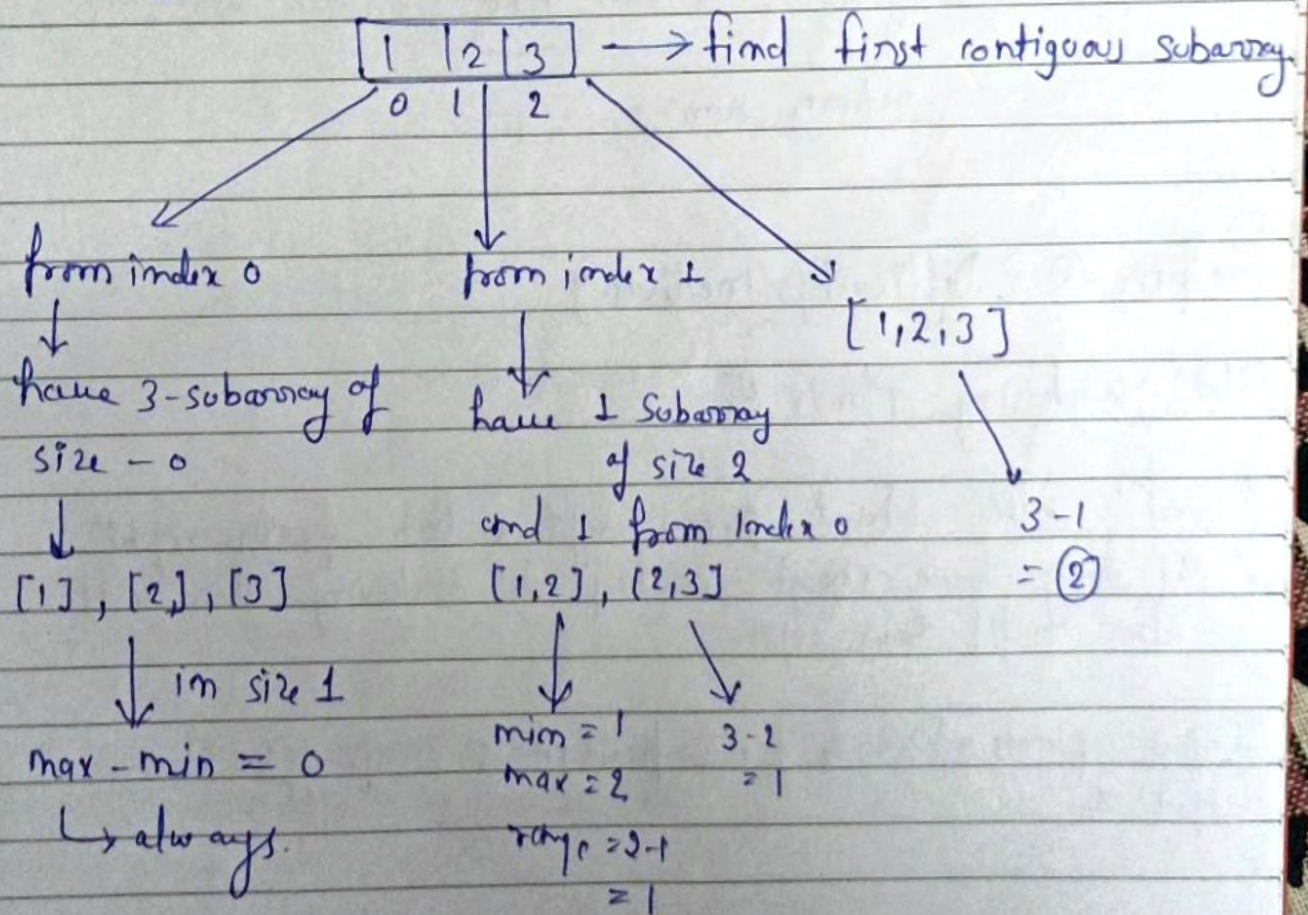 1 2 3 → find first contiguous subarray
0 1 2
from index 0
have 3-subarray of
size - 0
[1], [2], [3]
in size 1
max - min = 0
↳ always.
from index 1
have 1 Subarray
of size 2
and 1 from Index 0
[1,2], [2,3]
min = 1
max = 2
range = 2-1
= 1
3-2
= 1
[1,2,3]
3-1
= 2